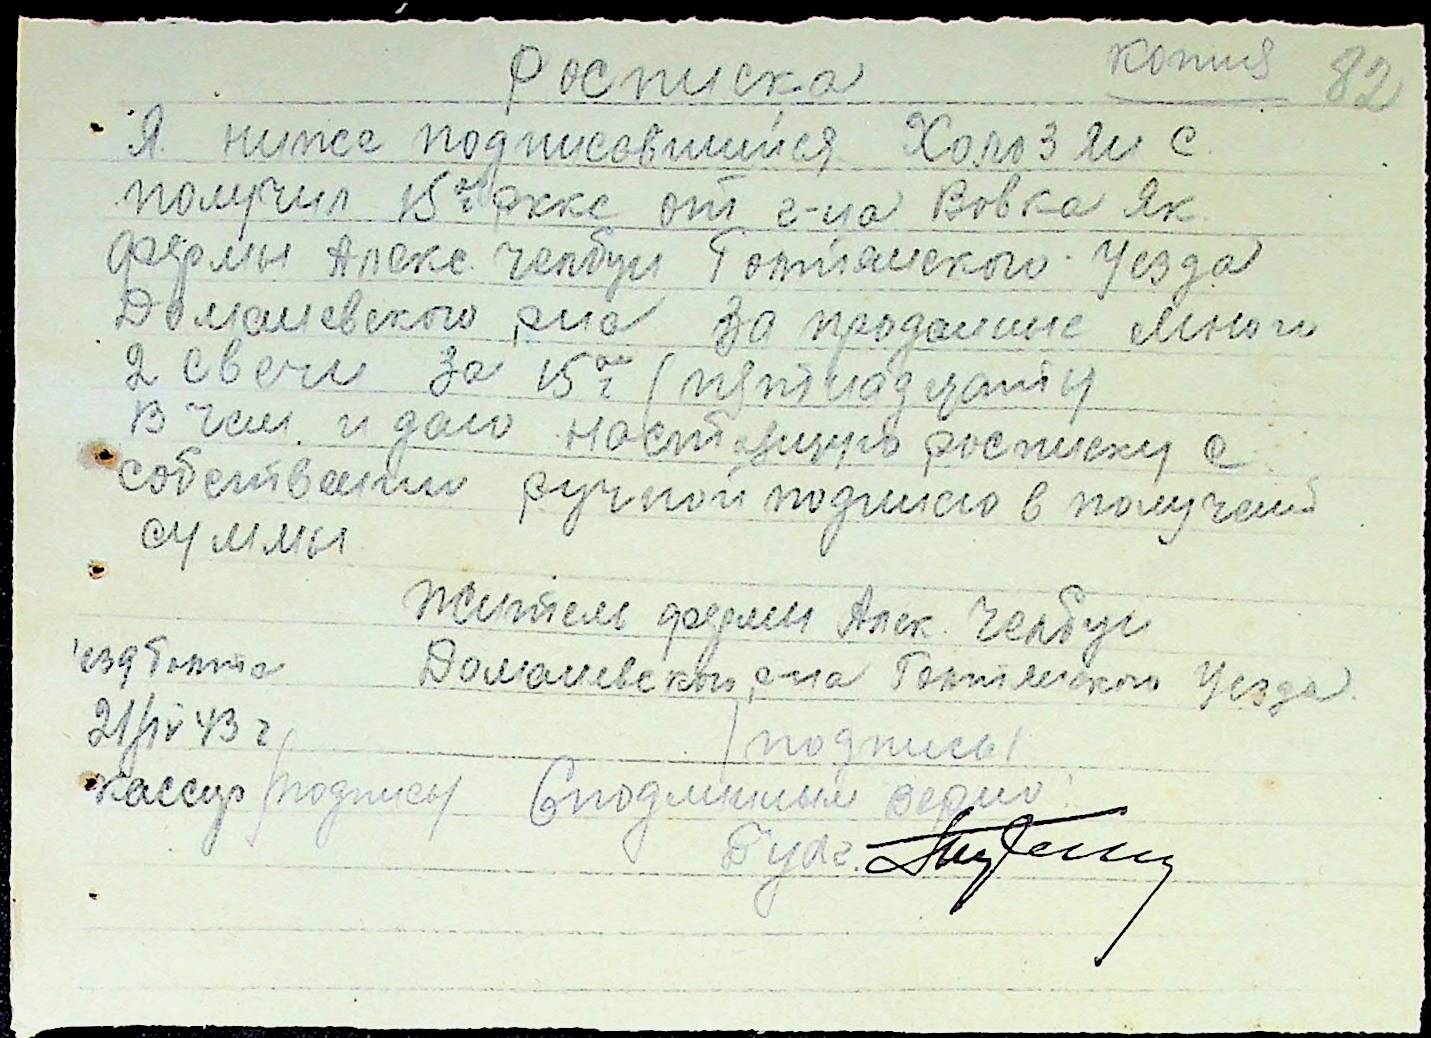 Росписка копия 82
Я ниже подписавшийся Холозян С.
получил 15 от г-на Вовка Як.
фермы Алекс. Чепбун Голтянского Уезда
Доманевского р-на за проданные мною
2 свечи за 15 (пятнадцать)
В чем и даю настоящую росписку с
собственни ручной подписю в получении
суммы
Житель фермы Алек. Чепбун
Доманевского р-на Голтянского Уезда
21/IV 43 г
/подпись/
кассир /подпись/ С подлинным верно:
Бухг.